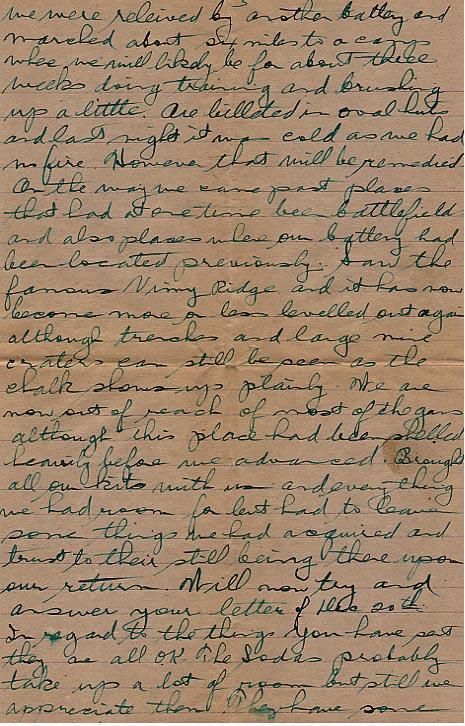 we were releived by another battery and
marched about six miles to a camp
where we will likely be for about three
weeks doing training and brushing
up a little. Are billeted in oval huts
and last night it was cold as we had
no fire. However that will be remedied
On the way we came past places
that had at one time been battlefield
and also places where our battery had
been located previously. Saw the
famous Vimy Ridge and it has now
become more or less levelled out again
although trenches and large mine
craters can still be seen as the
chalk shows up plainly. We are
now out of reach of most of the guns
although this place had been shelled
heavily before we advanced. Brought
all our kits with us and everything
we had room for but had to leave
some things we had acquired and
trust to their still being there upon
our return. Will now try and
answer your letter of Dec 20th.
In regard to the things you have sent
they are all OK. The Sodas probably
take up a lot of room but still we
appreciate them. They have some